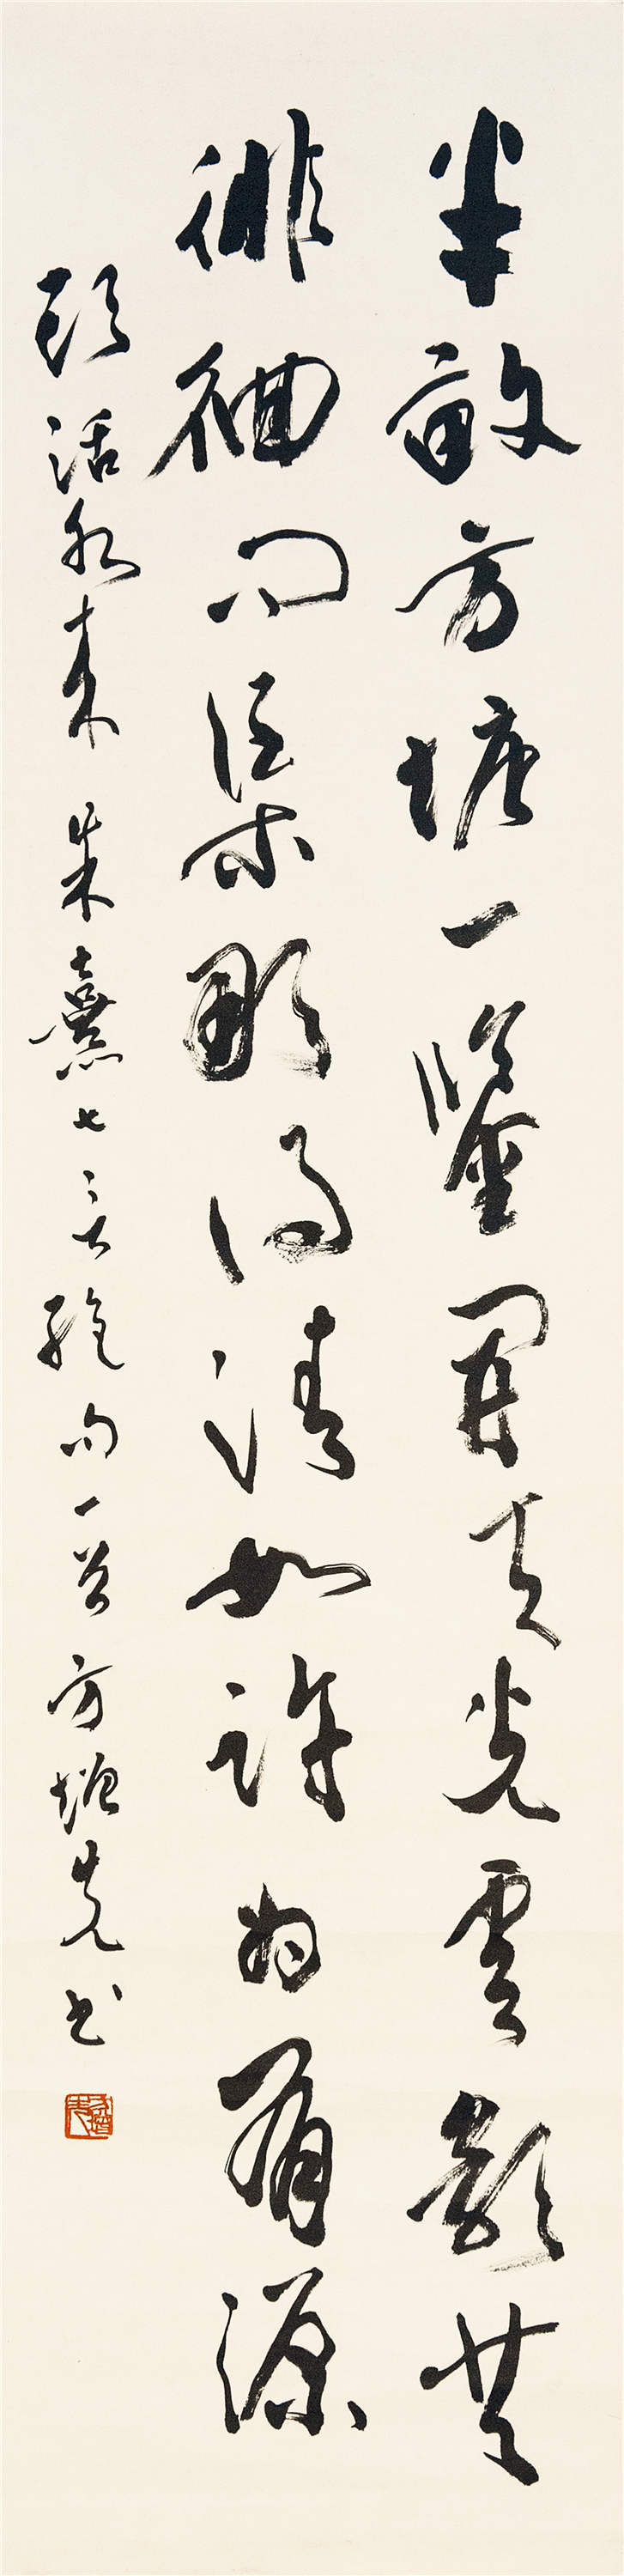 半畝方塘一鑒開天光雲影共
徘徊問渠那得清如許為有源
頭活水來 朱熹七言絕句一首 方增先書